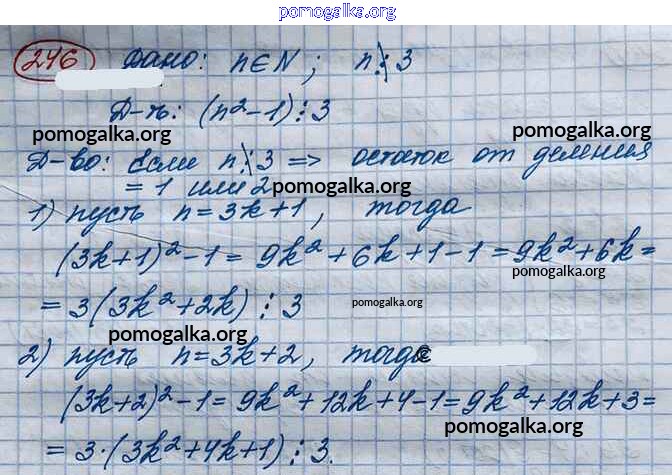 pomogalka.org
246 Дано: n∈N; n⋮̸3
Д-ть: (n²-1)⋮3
pomogalka.org pomogalka.org
Д-во: Если n⋮̸3 => остаток от деления
= 1 или 2 pomogalka.org
1) пусть n=3k+1, тогда
(3k+1)²-1=9k²+6k+1-1=9k²+6k=
pomogalka.org
=3(3k²+2k)⋮3 pomogalka.org
pomogalka.org
2) пусть n=3k+2, тогда
(3k+2)²-1=9k²+12k+4-1=9k²+12k+3=
pomogalka.org
=3·(3k²+4k+1)⋮3.
pomogalka.org